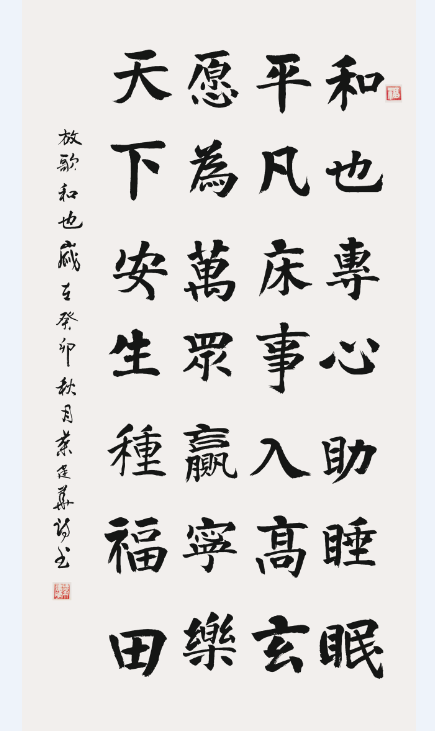 和也專心助睡眠
平凡床事入高玄
愿為萬眾贏寧樂
天下安生種福田
放歌和也
癸卯秋月葉
福